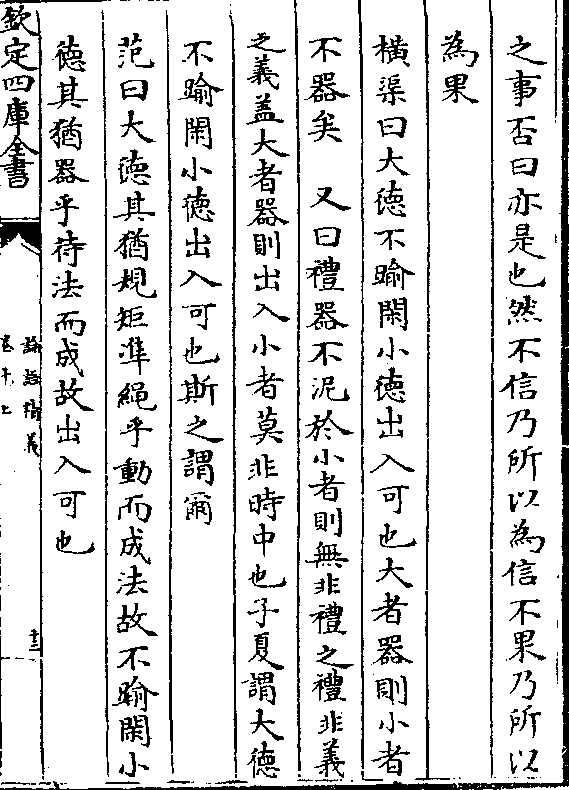 之事否曰亦是也然不信乃所以為信不果乃所以
為果
橫渠曰大徳不踰閑小徳出入可也大者器則小者
不器矣 又曰禮器不泥於小者則無非禮之禮非義
之義蓋大者器則出入小者莫非時中也子夏謂大徳
不踰閑小徳出入可也斯之謂爾
范曰大徳其猶規矩凖繩乎動而成法故不踰閑小
徳其猶器乎待法而成故出入可也
欽定四庫全書
論語精義
卷十上
十三